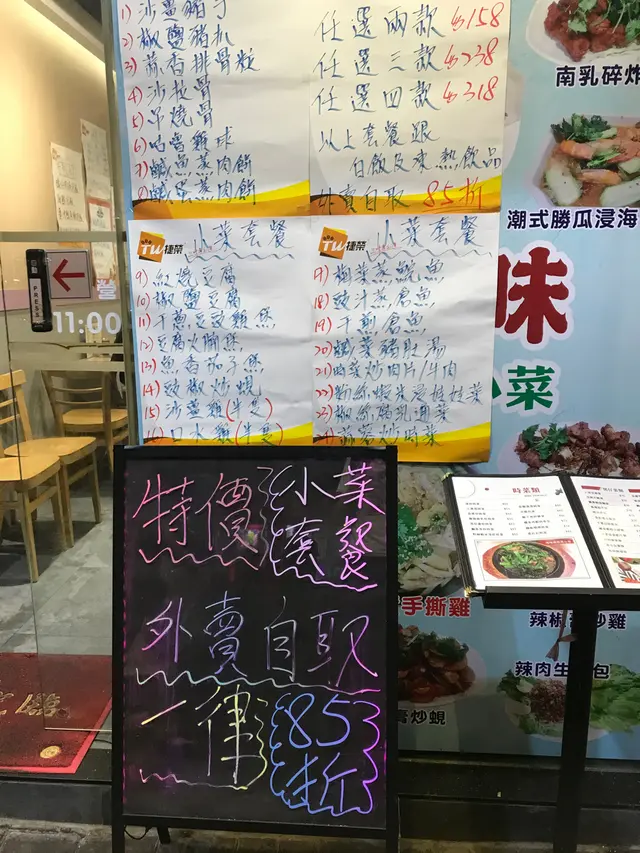 2) 椒鹽豬扒
3) 蒜香排骨粒
4) 沙拉骨
5) 京燒骨
6) 咕嚕雞球
7) 鹹魚蒸肉餅
8) 鹹蛋蒸肉餅
任選兩款 $158
任選三款 $238
任選四款 $318
以上套餐跟
白飯及凍熱飲品
外賣自取 85折
TW捷榮 小菜套餐
9) 紅燒豆腐
10) 椒鹽豆腐
11) 干蔥豆豉雞煲
12) 豆腐火腩煲
13) 魚香茄子煲
14) 豉椒炒蜆
15) 沙薑雞(半隻)
16) 口水雞(半隻)
TW捷榮 小菜套餐
18) 豉汁蒸倉魚
19) 干煎倉魚
20) 鹹菜豬肚湯
21) 時菜炒肉片/牛肉
22) 粉絲蝦米浸娃娃菜
23) 椒絲腐乳通菜
24) 蒜蓉炒時菜
PRESS
營
11:00
特價 小菜套餐
外賣自取
一律 85折
南乳碎炸
潮式勝瓜浸海
味
小菜
時菜類
手撕雞
辣椒
炒雞
辣肉生
包
炒蜆